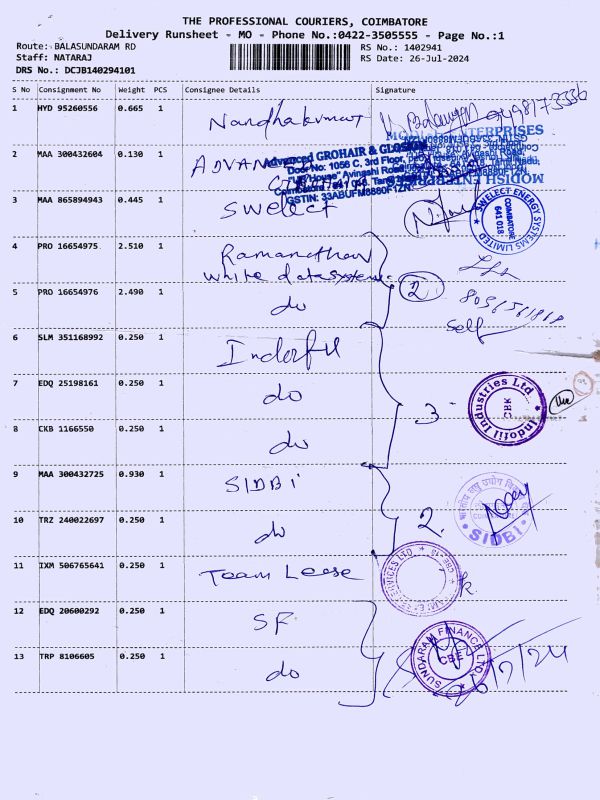 THE PROFESSIONAL COURIERS, COIMBATORE
Delivery Runsheet - MO - Phone No.:0422-3505555 - Page No.:1
Route: BALASUNDARAM RD
Staff: NATARAJ
DRS No.: DCJB140294101
RS No.: 1402941
RS Date: 26-Jul-2024
S No Consignment No Weight PCS Consignee Details Signature
1 HYD 95260556 0.665 1 Nandhakumar
MODISH ENTERPRISES
2 MAA 300432604 0.130 1 ADVANCED
Advanced GROHAIR & GLOSKIN
Door No: 1056 C, 3rd Floor,
Avinashi Road
GSTIN: 33ABUFM8880F1ZN
3 MAA 865894943 0.445 1 Swelect
SWELECT ENERGY SYSTEMS LIMITED
COIMBATORE
641 018
4 PRO 16654975 2.510 1 Ramanathan
White data systems
2
5 PRO 16654976 2.490 1 do
Self
6 SLM 351168992 0.250 1 Indofil
7 EDQ 25198161 0.250 1 do
3
Indofil Industries Ltd
CBK
8 CKB 1166550 0.250 1 do
9 MAA 300432725 0.930 1 SIDBI
2.
SIDBI
10 TRZ 240022697 0.250 1 do
11 IXM 506765641 0.250 1 Team Lease
12 EDQ 20600292 0.250 1 SF
SUNDARAM FINANCE LTD.
CBE
13 TRP 8106605 0.250 1 do
26/7/24